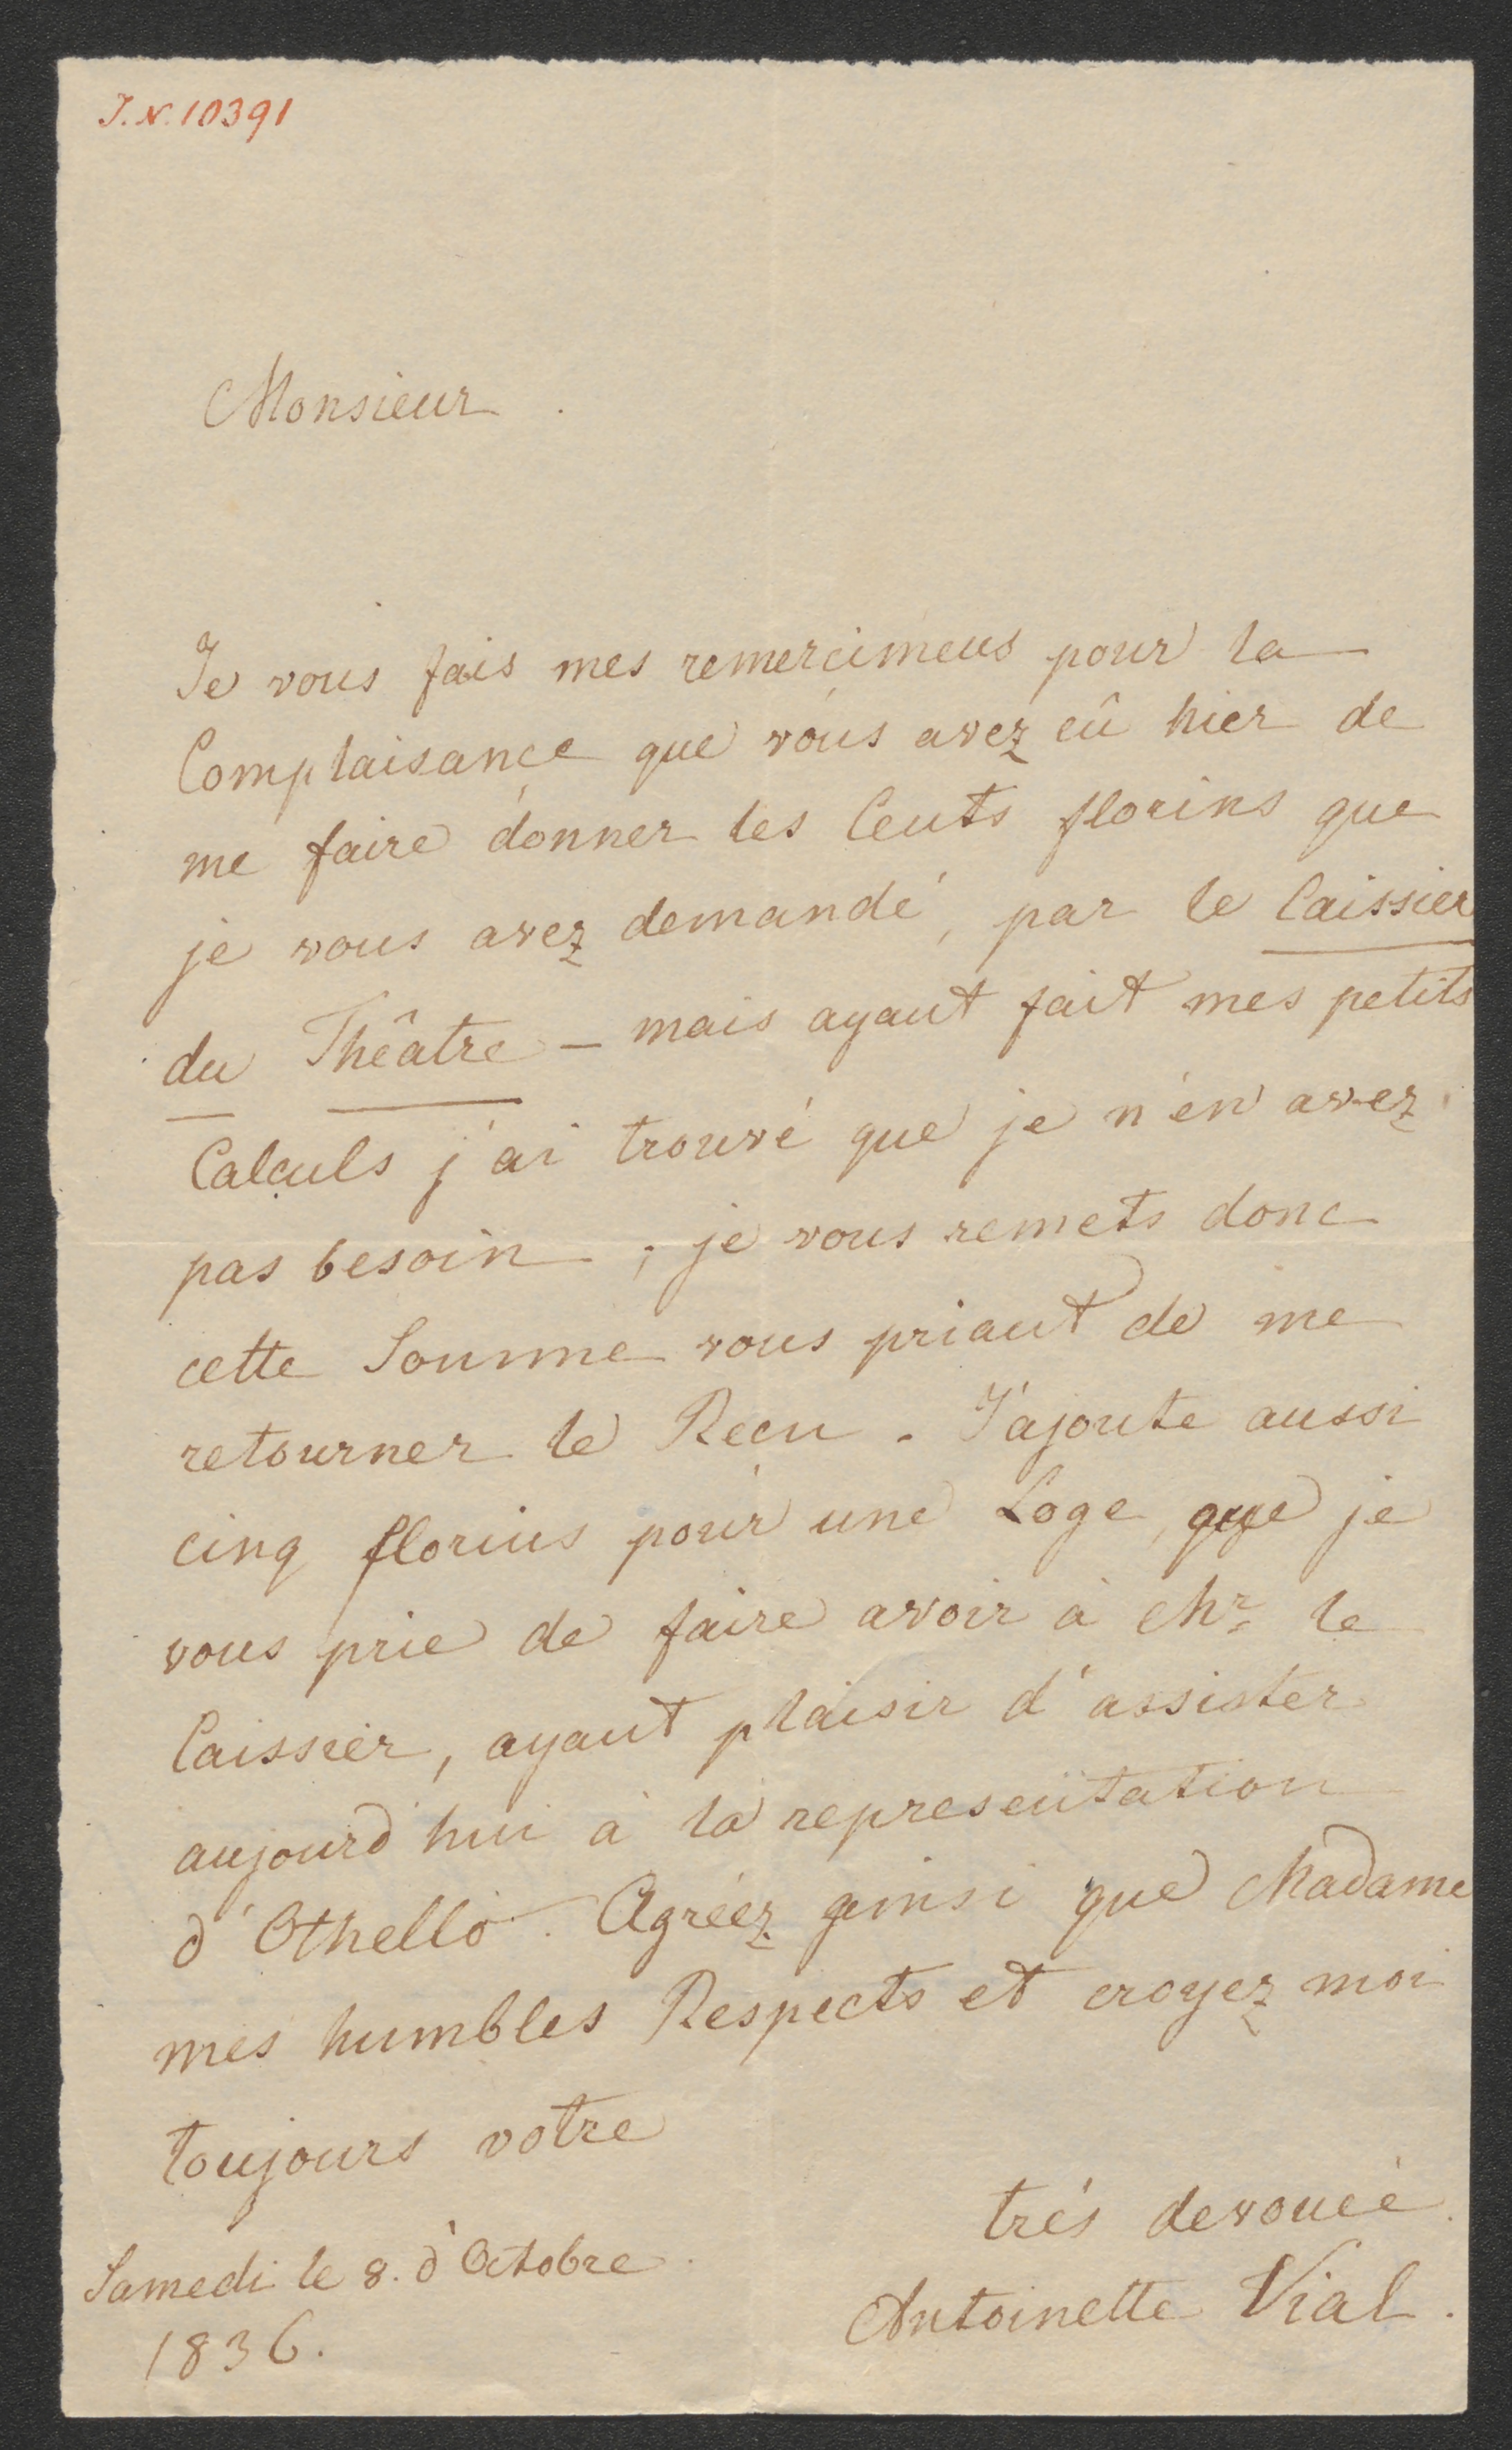 J.N. 10391
Monsieur
Je vous fais mes remercimens pour la
Complaisance que vous avez eû hier de
me faire donner les Cents florins que
je vous avez demandé, par le Caissier
du Théâtre — mais ayant fait mes petits
Calculs j'ai trouvé que je n'en avez
pas besoin ; je vous remets donc
cette Somme vous priant de me
retourner le Recu. J'ajoute aussi
cinq florins pour une Loge, que je
vous prie de faire avoir à Mr. le
Caissier, ayant plaisir d'assister
aujourd'hui à la representation
d'Othello. Agréez ainsi que Madame
mes humbles Respects et croyez moi
toujours votre
trés devouée
Antoinette Vial.
Samedi le 8. d'Octobre
1836.